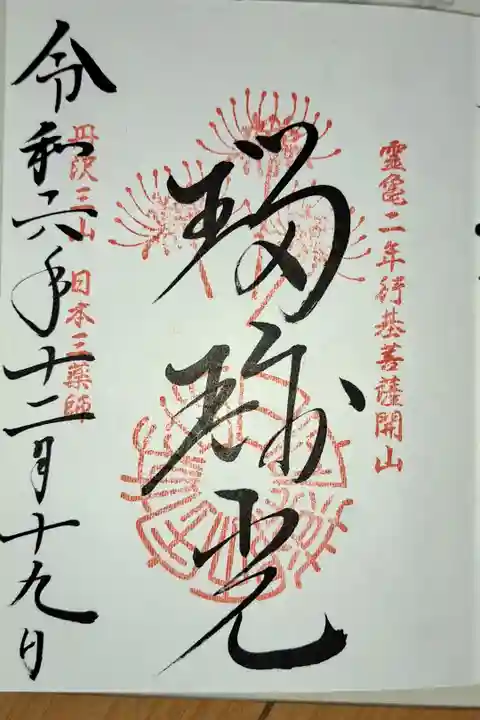 霊亀二年行基菩薩開山
瑠璃光
丹波三山 日本三薬師
令和六年十二月十九日